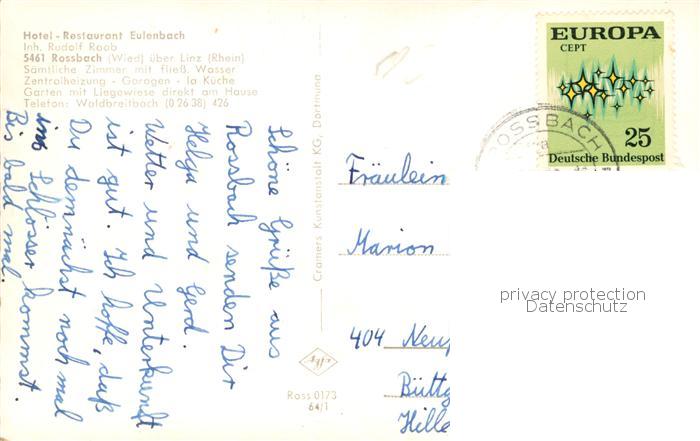 Hotel - Restaurant Eulenbach
Inh. Rudolf Raab
5461 Rossbach (Wied) über Linz (Rhein)
Sämtliche Zimmer mit fließ. Wasser
Zentralheizung - Garagen - la Küche
Garten mit Liegewiese direkt am Hause
Telefon: Waldbreitbach (0 26 38) 426
Schöne Grüße aus
Rossbach senden Dir
Helga und Gerd.
Wetter und Unterkunft
ist gut. Ich hoffe, daß
Du demnächst noch mal
ins Schlösser kommst.
Bis bald mal.
Cramers Kunstanstalt KG, Dortmund
Ross 0173
64/1
EUROPA
CEPT
25
Deutsche Bundespost
ROSSBACH
Fräulein
Marion
404 Neu
Büttg
Hille
privacy protection
Datenschutz